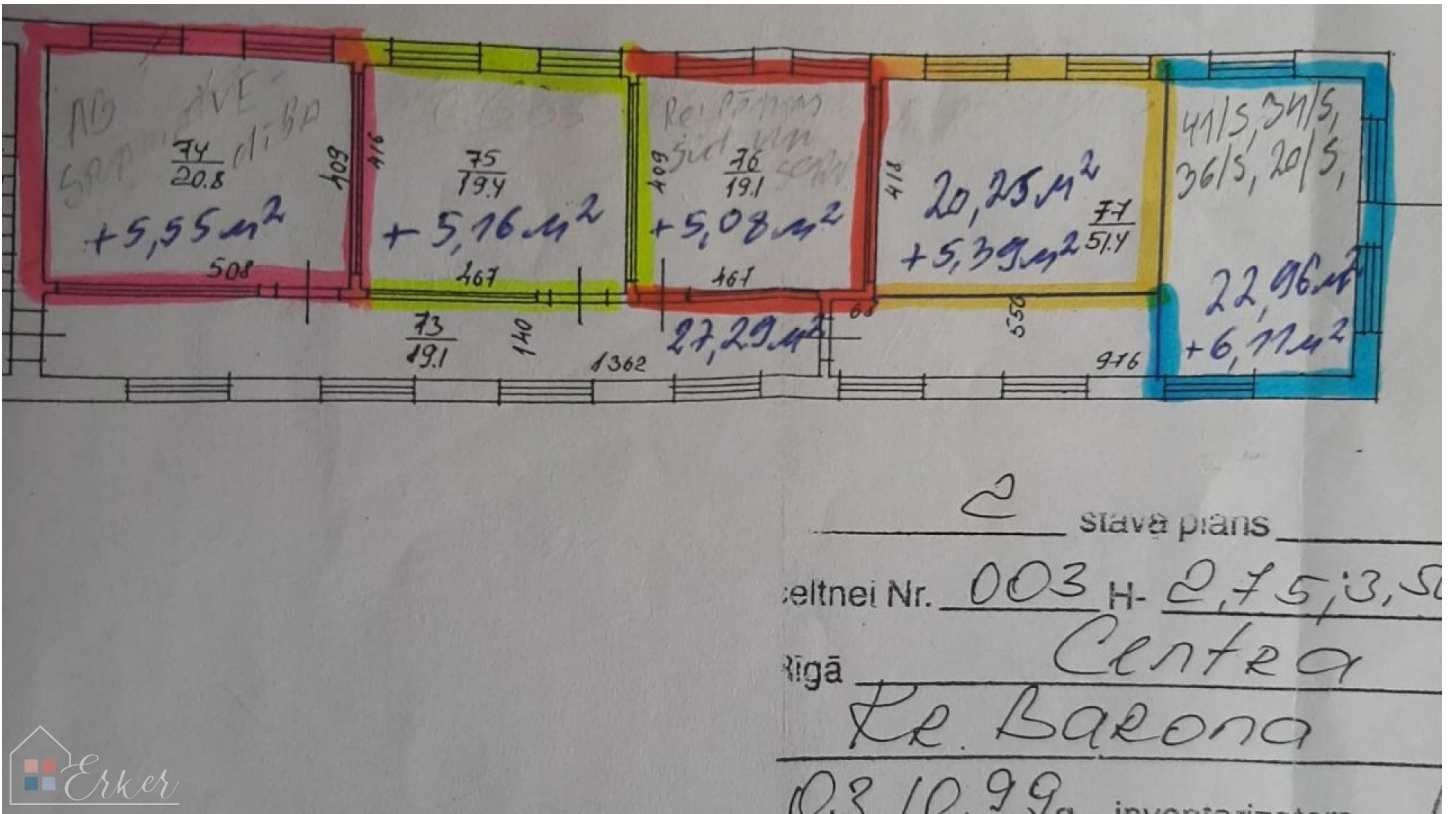 74
20.8
+5,55 м²
508
409
416
75
19.4
+5,16 м²
467
409
76
19.1
+5,08 м²
467
418
20,25 м²
+5,39 м²
77
51.4
41/5, 34/5,
36/5, 20/5,
22,96 м²
+6,11 м²
73
19.1
140
1362
27,29 м²
68
550
976
2 stāva plāns
celtnei Nr. 003 H- 2,75; 3,50
Rīgā Centra
Kr. Barona
03 10. 99g. inventarizators
Erker